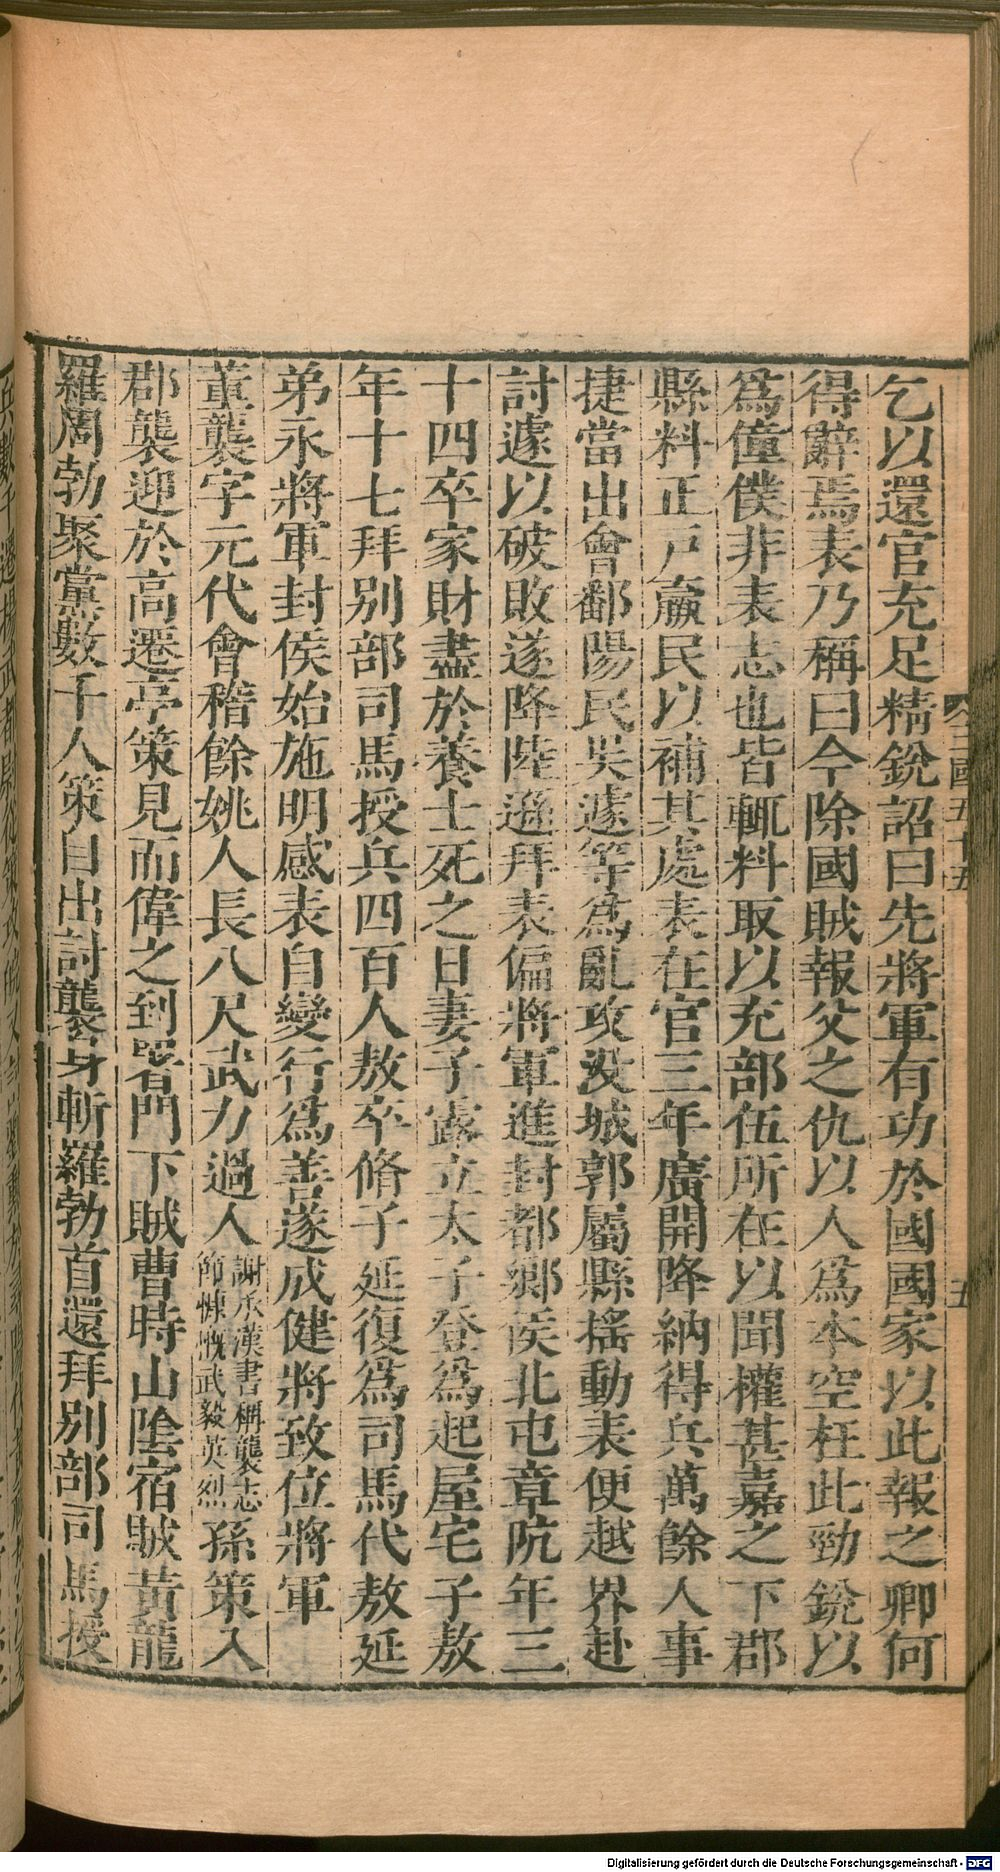 乞以還官充足精銳詔曰先將軍有功於國國家以此報之卿何
得辭焉表乃稱曰今除國賊報父之仇以人爲本空枉此勁銳以
爲僮僕非表志也皆輒料取以充部伍所在以聞權甚嘉之下郡
縣料正戶羸民以補其處表在官三年廣開降納得兵萬餘人事
捷當出會鄱陽民吳遽等爲亂攻没城郭屬縣搖動表便越界赴
討遽以破敗遂降陸遜拜表偏將軍進封都鄉侯北屯章阬年三
十四卒家財盡於養士死之日妻子露立太子登爲起屋宅子敖
年十七拜別部司馬授兵四百人敖卒脩子延復爲司馬代敖延
弟永將軍封侯始施明感表自變行爲善遂成健將致位將軍
董襲字元代會稽餘姚人長八尺武力過人謝承漢書稱襲志節慷慨武毅英烈孫策入
郡襲迎於高遷亭策見而偉之到署門下賊曹時山陰宿賊黃龍
羅周勃聚黨數千人策自出討襲身斬羅勃首還拜別部司馬授
三國五十五
五
Digitalisierung gefördert durch die Deutsche Forschungsgemeinschaft - DFG